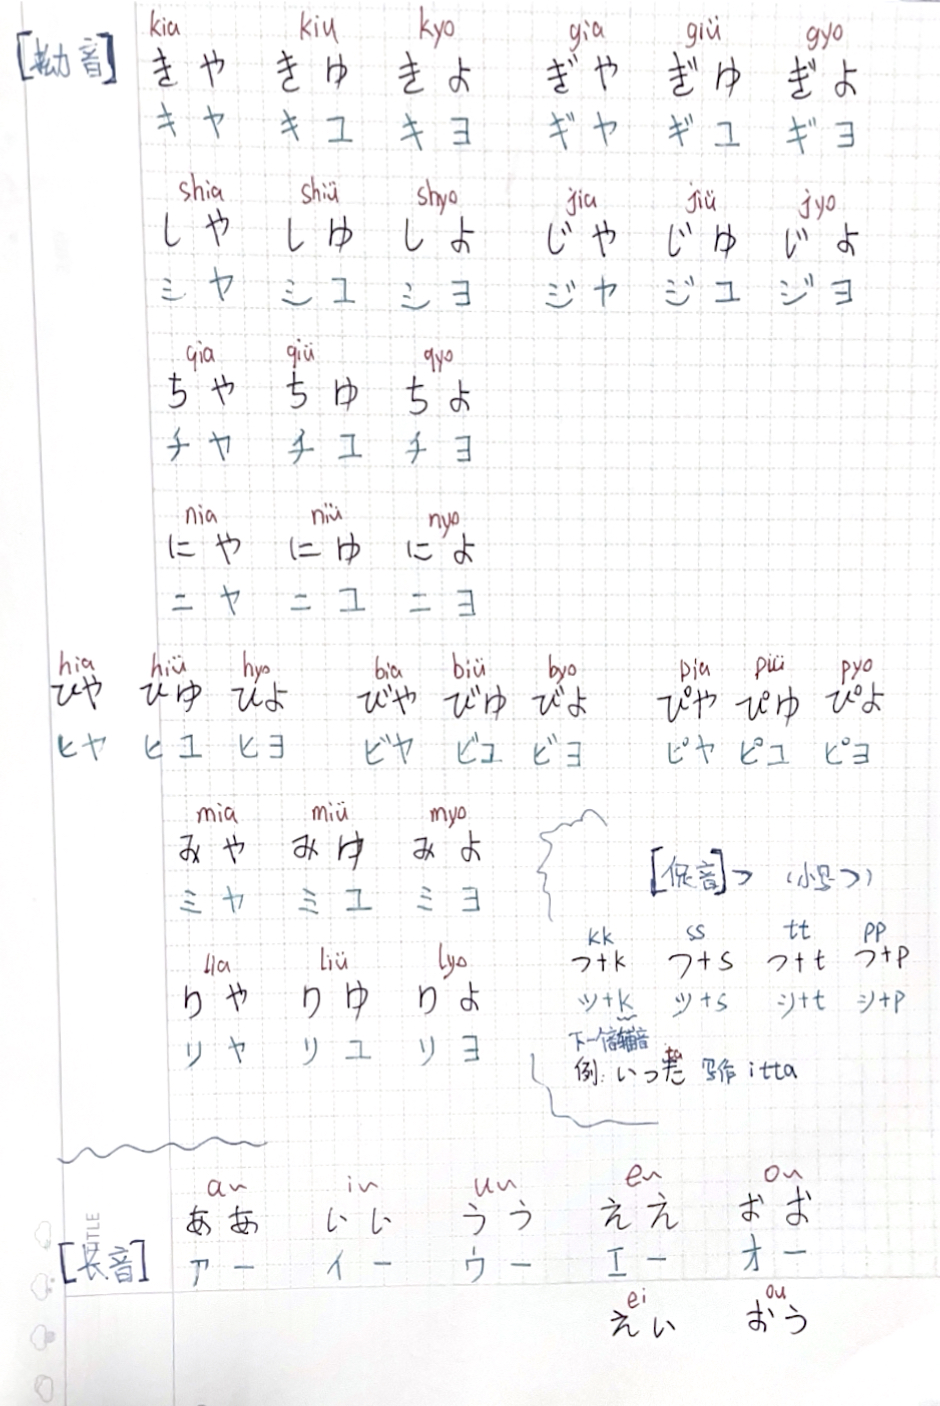 kia kiu kyo gia giü gyo
[拗音] きや きゆ きよ ぎや ぎゆ ぎよ
キヤ キユ キヨ ギヤ ギユ ギヨ
shia shiü shyo jia jiü jyo
しや しゆ しよ じや じゆ じよ
シヤ シユ ショ ジヤ ジユ ジヨ
qia qiü qyo
ちや ちゆ ちよ
チヤ チユ チヨ
nia niü nyo
にや にゆ によ
ニヤ ニユ ニヨ
hia hiü hyo bia biü byo pia piü pyo
ひや ひゆ ひよ びや びゆ びよ ぴや ぴゆ ぴよ
ヒヤ ヒユ ヒヨ ビヤ ビユ ビヨ ピヤ ピユ ピヨ
mia miü myo
みや みゆ みよ
ミヤ ミユ ミヨ
[促音]っ (小号つ)
lia liü lyo
りや りゆ りよ
リヤ リユ リヨ
kk ss tt pp
つ+k つ+s つ+t つ+p
ツ+k ツ+s ツ+t ツ+p
下一个音辅音
ta
例: いった 写作 itta
a~ i~ u~ e~ o~
ああ いい うう ええ おお
[长音] アー イー ウー エー オー
TITLE
ei ou
えい おう